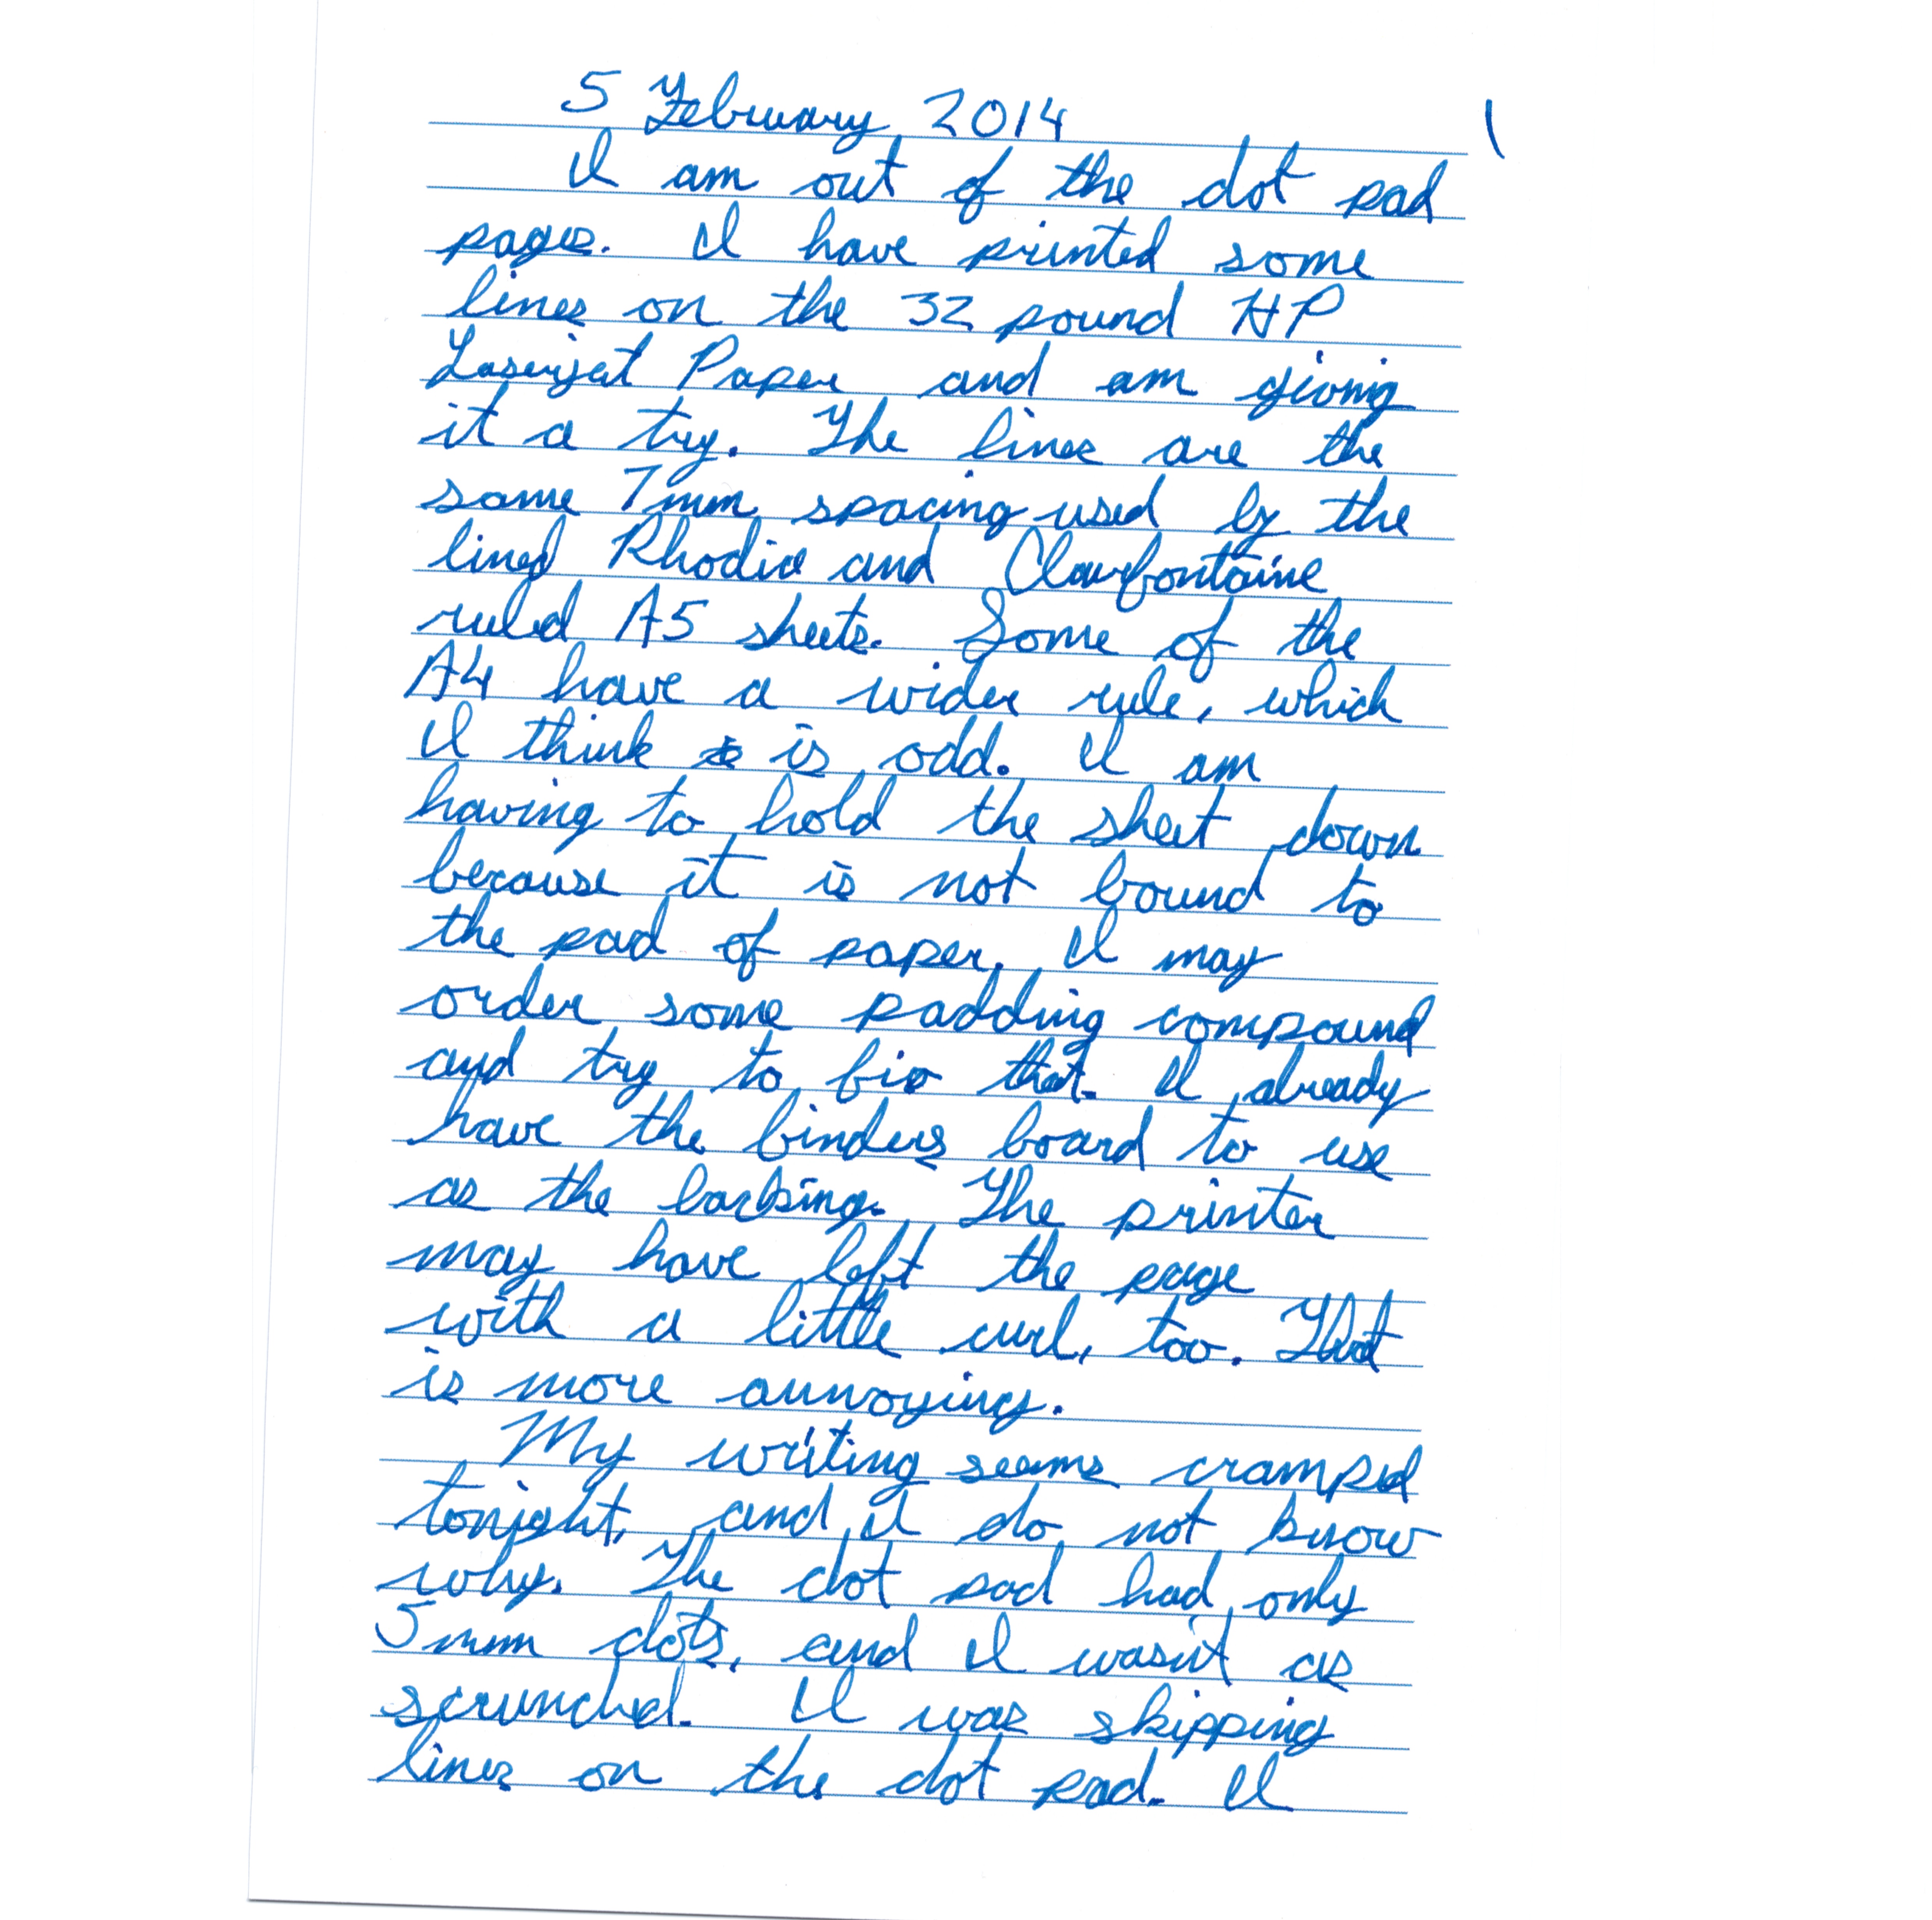 5 February 2014 1
I am out of the dot pad
pages. I have printed some
lines on the 32 pound HP
Laserjet Paper and am giving
it a try. The lines are the
same 7mm spacing used by the
lined Rhodia and Clairfontaine
ruled A5 sheets. Some of the
A4 have a wider rule, which
I think is odd. I am
having to hold the sheet down
because it is not bound to
the pad of paper. I may
order some padding compound
and try to fix that. I already
have the binders board to use
as the backing. The printer
may have left the page
with a little curl, too. That
is more annoying.
My writing seems cramped
tonight, and I do not know
why. The dot pad had only
5mm dots, and I wasn't as
scrunched. I was skipping
lines on the dot pad. I